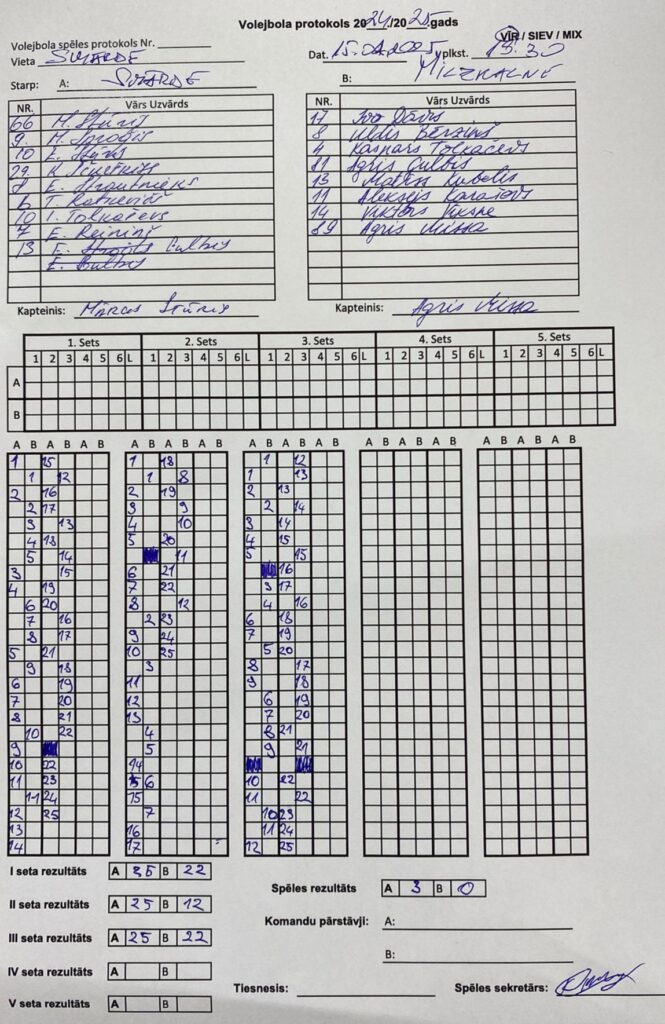 Volejbola protokols 2024/2025.gads
Volejbola spēles protokols Nr.
VĪR / SIEV / MIX
Vieta SMĀRDE
Dat. 15.02.2025 plkst. 15.30
Starp: A: SMĀRDE B: MILZKALNE
NR. Vārs Uzvārds NR. Vārs Uzvārds
66 M. Stūris 17 Ivo Dāvis
9 M. Sproģis 8 Uldis Bērziņš
10 E. Stūris 4 Kaspars Tolkačevs
29 K. 81 Agris Gulbis
8 E. Strautnieks 13 Matīss Kubelis
6 T. 11 Aleksejs Karašovs
10 I. Tolkačevs 14 Viktors Vīksne
7 E. Reiniņš 89 Agris Missa
13 E. Gulbis
E. Gulbis
Kapteinis: Mārcis Stūris Kapteinis: Agris Missa
1. Sets 2. Sets 3. Sets 4. Sets 5. Sets
1 2 3 4 5 6 L 1 2 3 4 5 6 L 1 2 3 4 5 6 L 1 2 3 4 5 6 L 1 2 3 4 5 6 L
A
B
A B A B A B A B A B A B A B A B A B A B A B A B A B A B A B
1 15 1 18 1 12
1 12 1 8 1 13
2 16 2 19 2 13
2 17 3 9 2 14
3 13 4 10 3 14
4 18 5 20 4 15
5 14 11 5 15
3 15 6 21 16
4 19 7 22 3 17
6 20 8 12 4 16
7 16 2 23 6 18
8 17 9 24 7 19
5 21 10 25 5 20
9 18 3 8 17
6 19 11 9 18
7 20 12 6 19
8 21 13 7 20
10 22 4 8 21
9 5 9 21
10 22 14
11 23 5 6 10 22
11 24 15 11 22
12 25 7 10 23
13 16 11 24
14 17 12 25
I seta rezultāts A 25 B 22
Spēles rezultāts A 3 B 0
II seta rezultāts A 25 B 12
Komandu pārstāvji: A:
III seta rezultāts A 25 B 22
B:
IV seta rezultāts A B
Tiesnesis: Spēles sekretārs:
V seta rezultāts A B